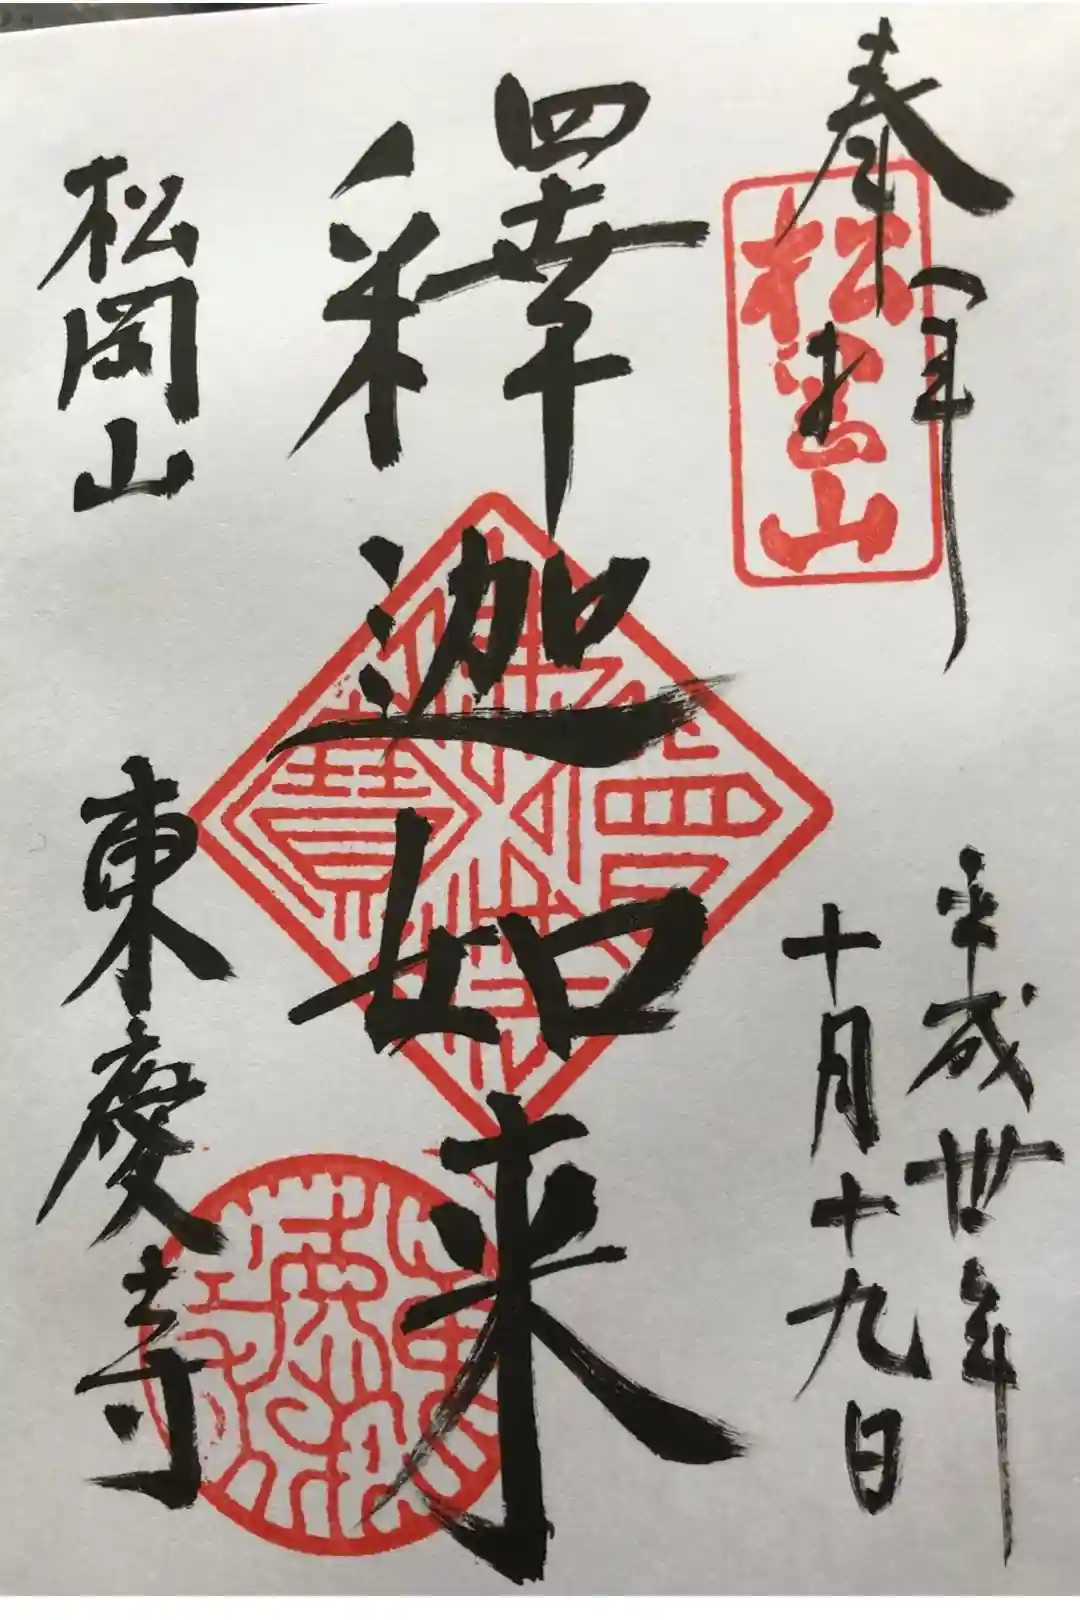 奉拝
松岡山
平成卅年
十月十九日
釋迦如来
佛法僧寶
松岡山
東慶寺